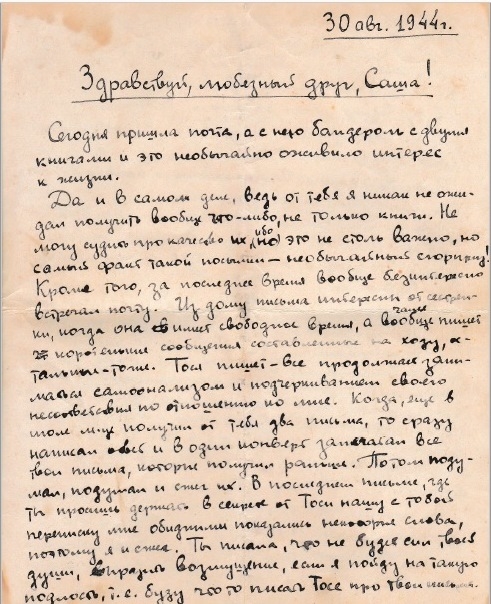 30 авг. 1944г.
Здравствуй, любезный друг, Саша!
Сегодня пришла почта, а с нею бандероль с двумя
книгами и это необычайно оживило интерес
к жизни.
Да и в самом деле, ведь от тебя я никак не ожи-
дал получить вообще что-либо, не только книги. Не
могу судить про качество их, ибо это не столь важно, но
самый факт такой посылки – необычайный сюрприз!
Кроме того, за последнее время вообще безинтересно
встречал почту. Из дому письма интересн от сестрен-
ки, когда она имеет свободное время, а чаще пишет
коротенькие сообщения составленные на ходу, о-
тальные-тоже. Тося пишет-все продолжает зани-
маться самоанализом и подчеркиванием своего
несоответствия по отношению ко мне. Когда, еще в
июле мце получил от тебя два письма, то сразу
написал ответ и в один конверт запечатал все
твои письма, которые получил раньше. Потом поду-
мал, подумал и сжег их. В последнем письме, где
ты просишь держать в секрете от Тоси нашу с тобой
переписку мне обидными показались некоторые слова,
поэтому я и сжег. Ты писала, что не будет сил твоей
души, выразить возмущение, если я пойду на такую
подлость, т.е. буду что-то писать Тосе про твои письма.